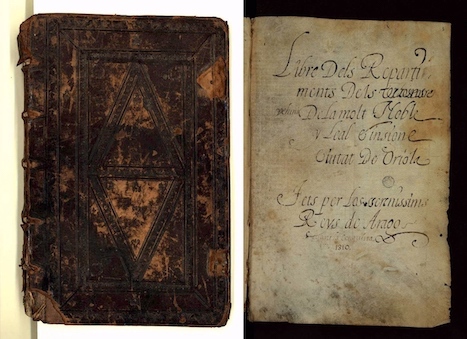 Libre Dels Reparti-
ments Dels
De la molt Noble
y Leal E insigne
Ciutat De Oriola
Fets per los serenissims
Reys de Arago